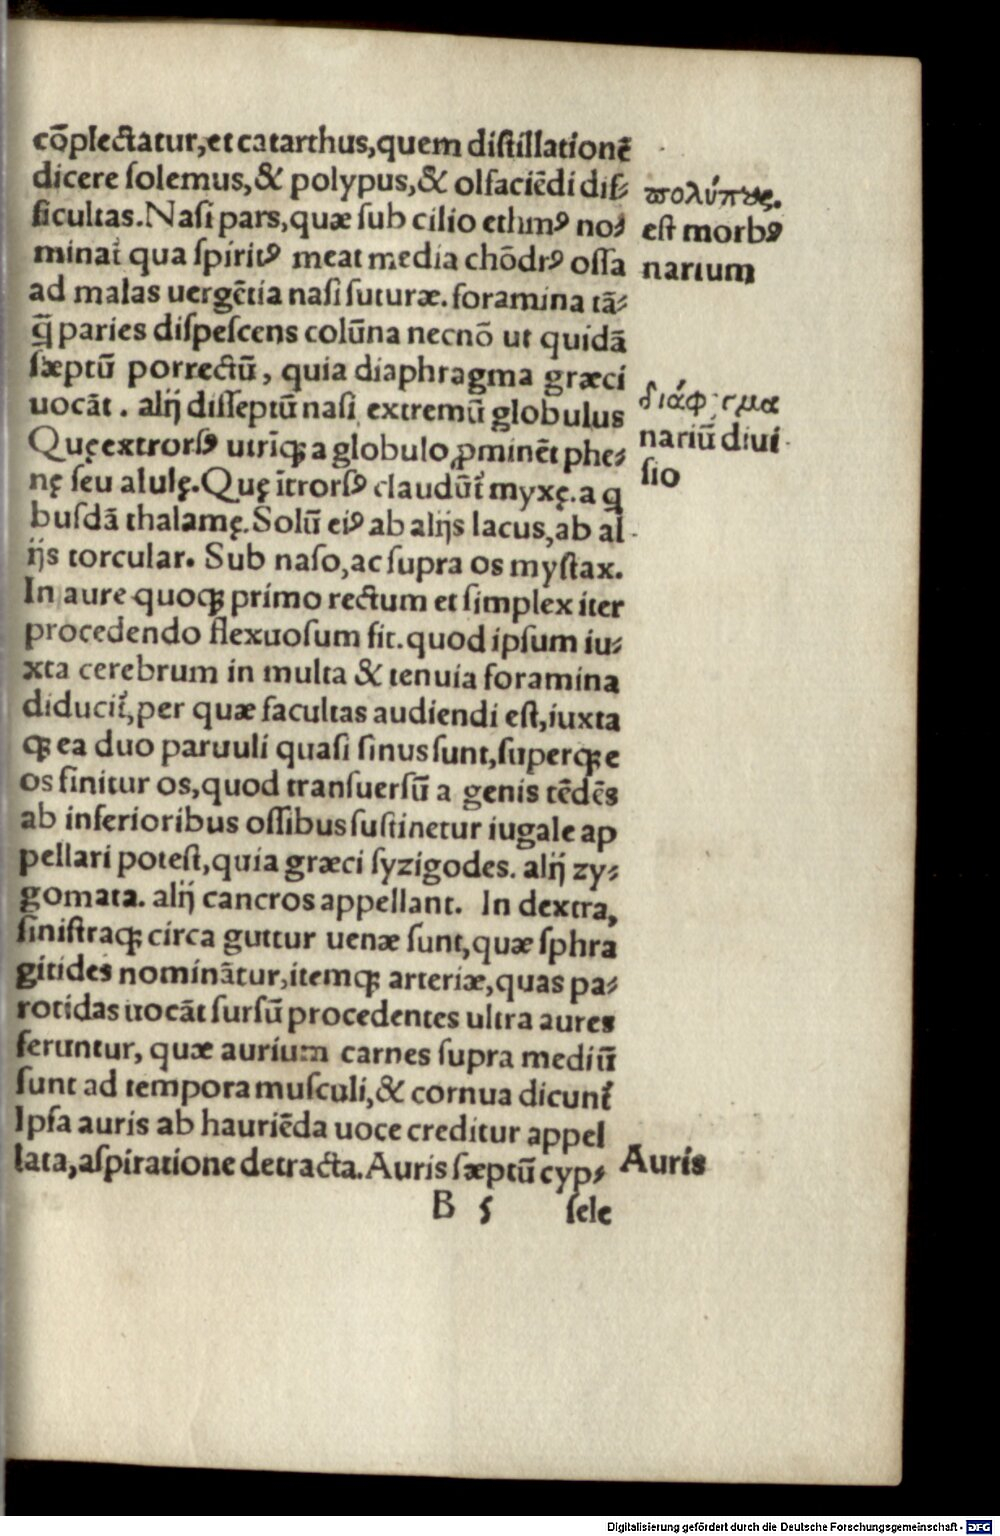 cōplectatur,et catarrhus,quem distillationē
dicere solemus,& polypus,& olfaciēdi dif⸗
ficultas.Nasi pars,quæ sub cilio ethmꝰ no⸗
minat᷑ qua spiritꝰ meat media chōdrꝰ ossa
ad malas uergētia nasi suturæ.foramina tā⸗
q̄ paries dispescens colūna necnō ut quidā
sæptū porrectū, quia diaphragma græci
uocāt. alij disseptū nasi extremū globulus
Quę extrorsꝰ utrīqꝫ a globulo ꝓminēt phe⸗
nę seu alulę.Quę ītrorsꝰ claudūt᷑ myxę.a q
busdā thalamę.Solū eiꝰ ab alijs lacus,ab al
ijs torcular. Sub naso,ac supra os mystax.
In aure quoqꝫ primo rectum et simplex iter
procedendo flexuosum fit.quod ipsum iu⸗
xta cerebrum in multa & tenuia foramina
diducit᷑,per quæ facultas audiendi est,iuxta
qꝫ ea duo paruuli quasi sinus sunt,superqꝫ e
os finitur os,quod transuersū a genis tēdēs
ab inferioribus ossibus sustinetur iugale ap
pellari potest,quia græci syzigodes. alij zy⸗
gomata. alij cancros appellant. In dextra,
sinistraqꝫ circa guttur uenæ sunt,quæ sphra
gitides nominātur,itemqꝫ arteriæ,quas pa⸗
rotidas uocāt sursū procedentes ultra aures
feruntur, quæ aurium carnes supra mediū
sunt ad tempora musculi,& cornua dicunt᷑
Ipsa auris ab hauriēda uoce creditur appel
lata,aspiratione detracta.Auris sæptū cyp⸗
B 5 sele
πολύπȣς.
est morbꝰ
narium
nariū diui
sio
Auris
Digitalisierung gefördert durch die Deutsche Forschungsgemeinschaft - DFG